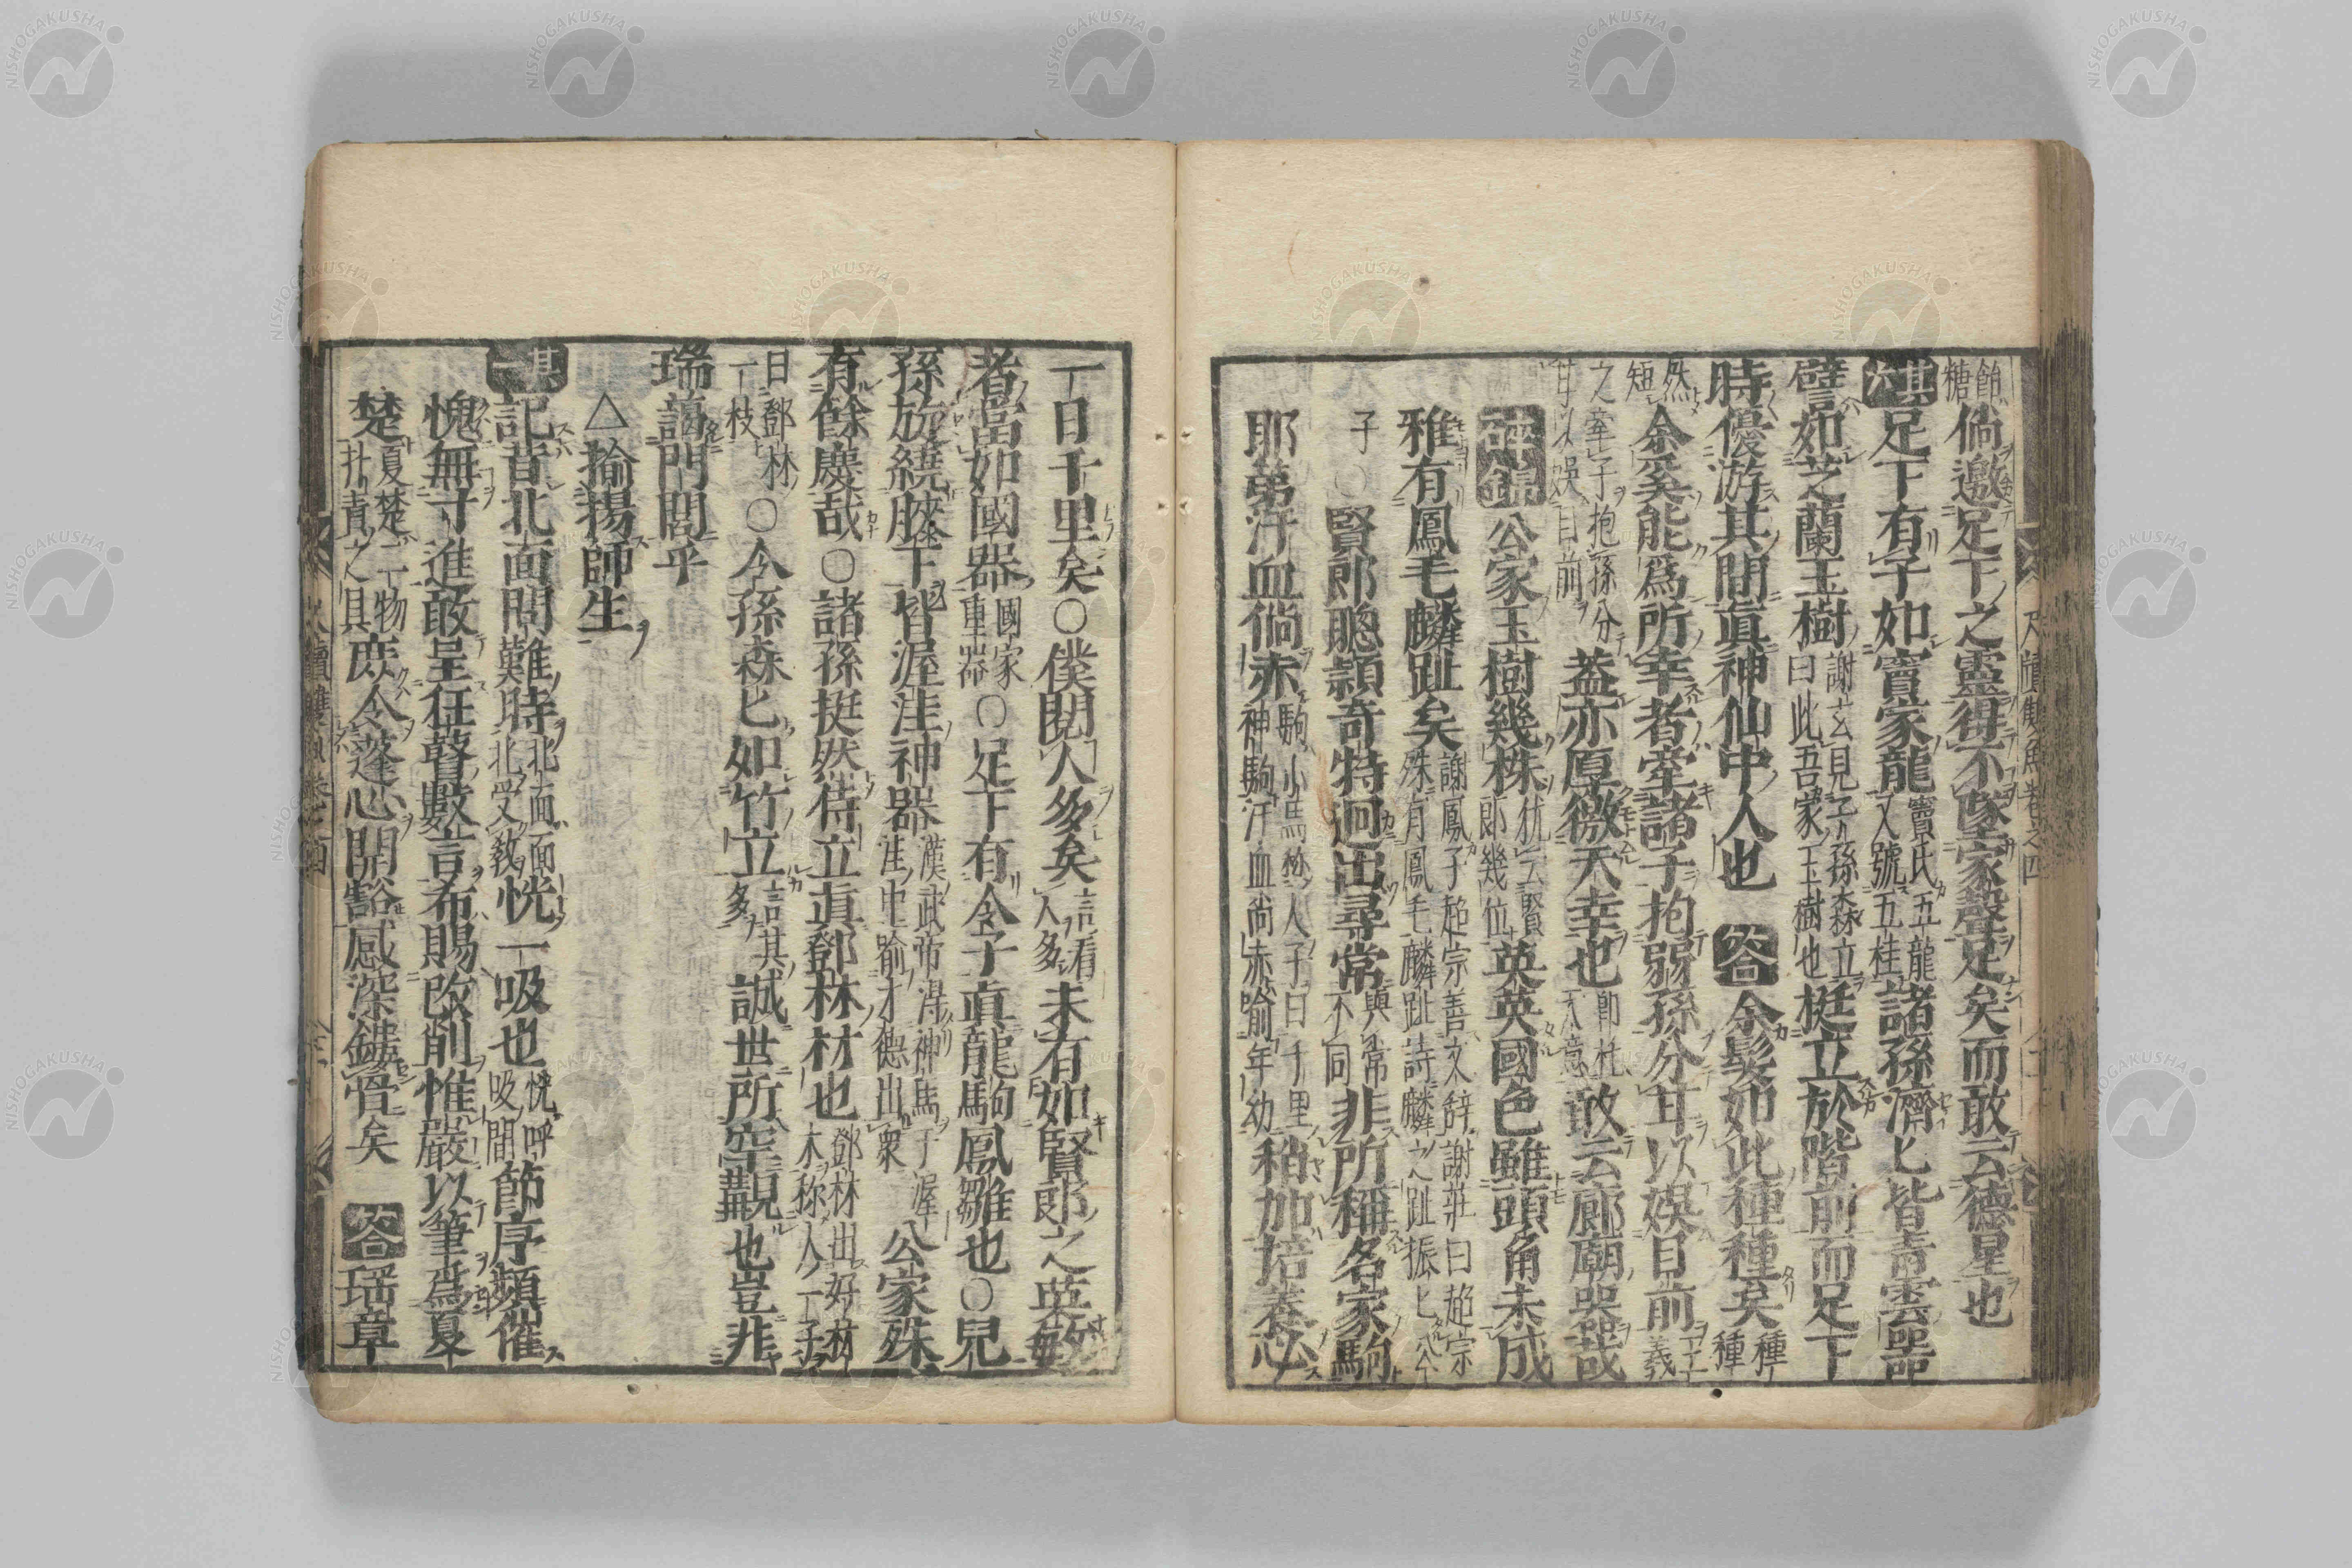 餙糖倘邀足下之靈得不墜家聲足矣而敢云德星也
其六足下有子如竇家龍竇氏五龍又號五桂諸孫濟匕皆青雲器
譬如芝蘭玉樹謝玄見子孫森立曰此吾家玉樹也挺立於階前而足下
時優游其間眞神仙中人也 答余髮如此種種矣種種
然短余奚能爲所幸者牽諸子抱弱孫分甘以娛目前王羲
之牽子抱孫分甘以娛目前蓋亦厚徼天幸也敢云廊廟器哉
碎錦公家玉樹幾株犹云賢郎幾位英英國色雖頭角未成
雅有鳳毛麟趾矣謝鳳子超宗善文辞謝莊曰超宗殊有鳳毛麟趾詩麟之趾振匕公
子○賢郎聰頴奇特迥出尋常與常不同非所稱名家駒
耶第汗血倘赤駒小馬楚人子曰千里神駒汗血尚赤喻年幼稍加培養忩
一日千里矣○僕閱人多矣言看人多未有如賢郎之英敏
者當如國器國家重器○足下有令子眞龍駒鳳雛也○兒
孫旋繞膝下皆渥洼神器漢武帝淂神馬于渥洼中喻才德出衆公家殊
有餘慶哉○諸孫挺然侍立眞鄧林材也鄧林出好材木称人子
曰鄧林一枝○今孫森匕如竹立言其多誠世所罕覯也豈非
瑞藹門閭乎
△揄揚師生
其一記昔北面問難時北面面北受敎恍一吸也恍呼吸間節序頻催
愧無寸進敢呈狂瞽數言希賜改削惟嚴以筆爲夏
楚夏楚二物扑責之具庻令蓬心開豁感深鏤骨矣 答瑶章
尺牘雙魚卷之四